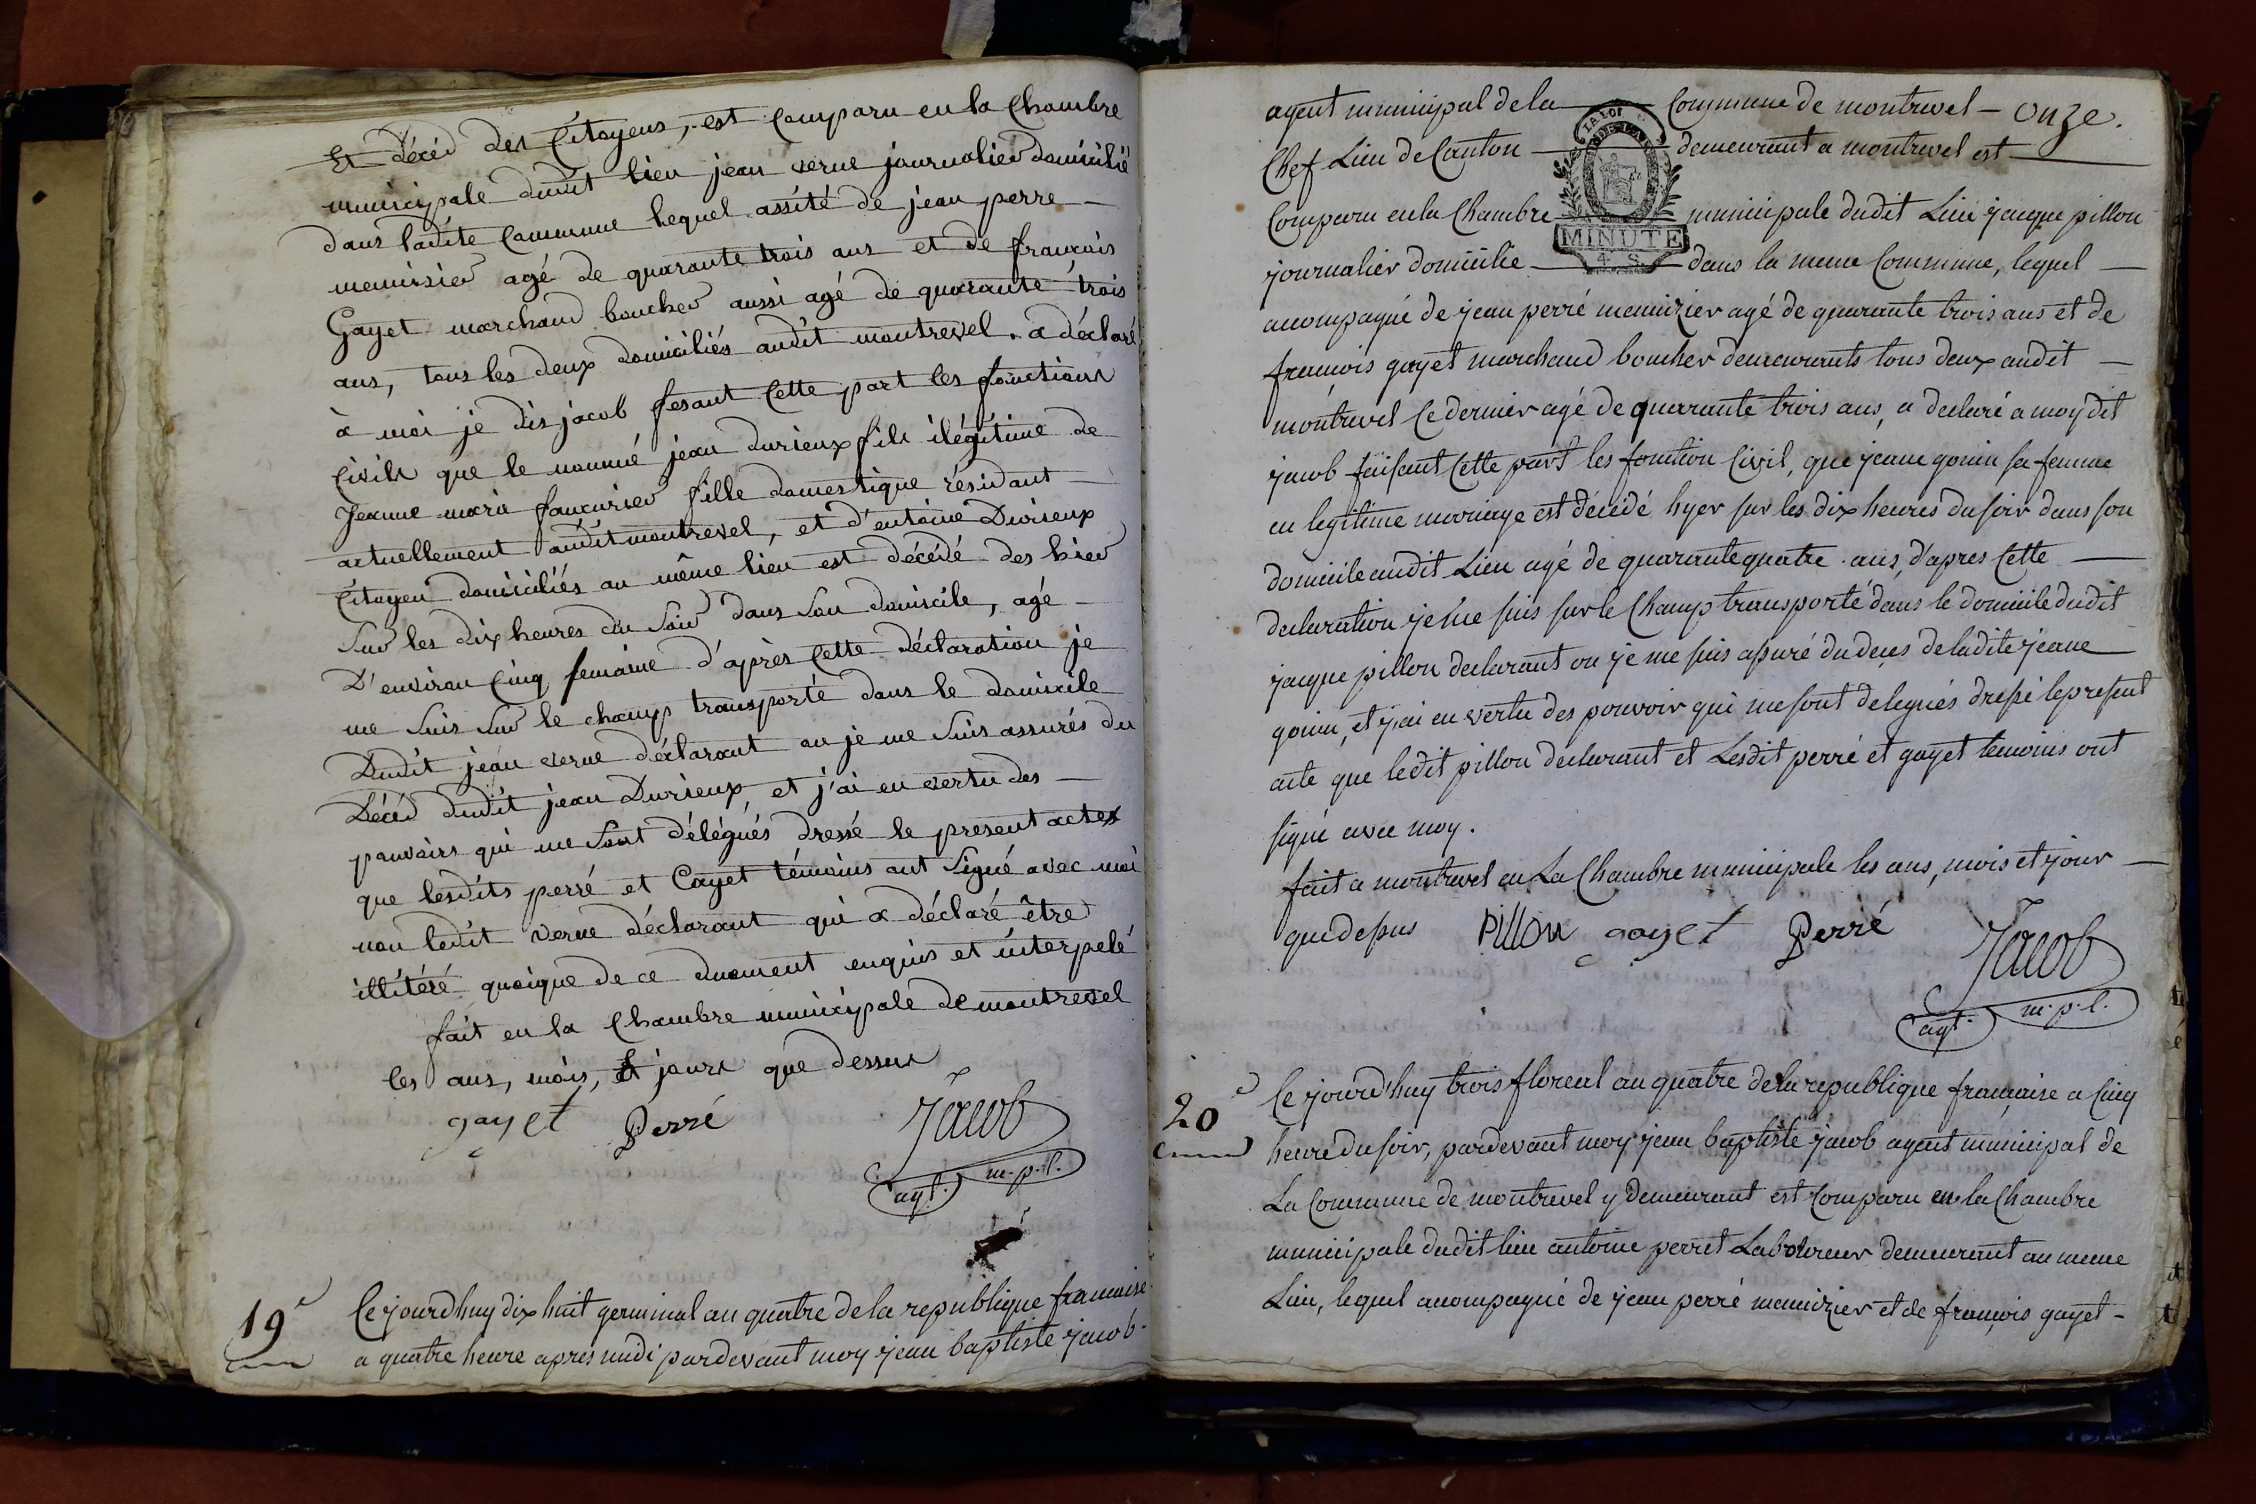 Et décéd des Citoyens, est comparu en la Chambre
municipale dudit lieu jean verne journalier domicilié
dans ladite Commune lequel assité de jean perre
menuisier agé de quarante trois ans et de francois
Gayet marchand boucher aussi agé de quarante trois
ans, tous les deux domiciliés audit montrevel. a déclaré
à moi je dis jacob fesant Cette part les fonctions
Civils que le nommé jean durieux fils ilégitime de
Jeanne maria fille domestique résidant
actuellement audit montrevel, et d'entoine Durieux
Citoyen domiciliés au même lieu est décédé des hier
Sur les dix heures du Soir dans Son domicile, agé
D'environ Cinq semaine d'après Cette déclaration je
me Suis Sur le champ transporté dans le domicile
Dudit jean verne déclarant ou je me Suis assurés du
Décéd dudit jean Durieux, et j'ai en vertu des
pouvoirs qui me Sont délégués dressé le present acte
que lesdits perré et Gayet témoins ont Signé avec moi
non ledit verne déclarant qui a déclaré être
illitéré quoique de ce duement enquis et interpelé
fait en la Chambre municipale de montrevel
les ans, mois, Et jours que dessus
gayet Perré Jacob
agt. m.p.l.
19e Ce jourdhuy dix huit germinal an quatre de la republique francaise
a quatre heure apres midi pardevant moy jean baptiste jacob
agent municipal de la Commune de montrevel - onze.
Chef Lieu de Canton demeurant a montrevel est
LA LOI
Comparu en la Chambre municipale dudit Lieu jacque pillon
MINUTE
journalier domicilie dans la meme Commune, lequel
acompagné de jean perré menuizier agé de quarante trois ans et de
francois gayet marchand boucher demeurants tous deux audit
montrevel Ce dernier agé de quarante trois ans, a declaré a moy dit
jacob faisant Cette part les fontion Civil, que jeane gonin sa femme
en legitime mariage est décédé hyer sur les dix heures du soir dans son
domicile audit Lieu agé de quarante quatre ans, d'apres Cette
declaration je me suis sur le Champ transporté dans le domicile dudit
jacque pillon declarant ou je me suis assuré du deces de ladite jeane
gonin, et j'ai en vertu des pouvoir qui me sont delegués dressé le present
acte que ledit pillon declarant et Lesdit perré et gayet temoins ont
signé avec moy.
fait a montrevel en La Chambre municipale les ans, mois et jour
que dessus Pillon gayet Perré Jacob
agt. m.p.l.
20e Ce jourd'huy trois floreal an quatre de la republique francaise a Cinq
heure du soir, pardevant moy jean baptiste jacob agent municipal de
La Commune de montrevel y demeurant est Comparu en la Chambre
municipale dudit lieu antoine perret Laboureur demeurant au meme
Lieu, lequel acompagné de jean perré menuizier et de francois gayet -